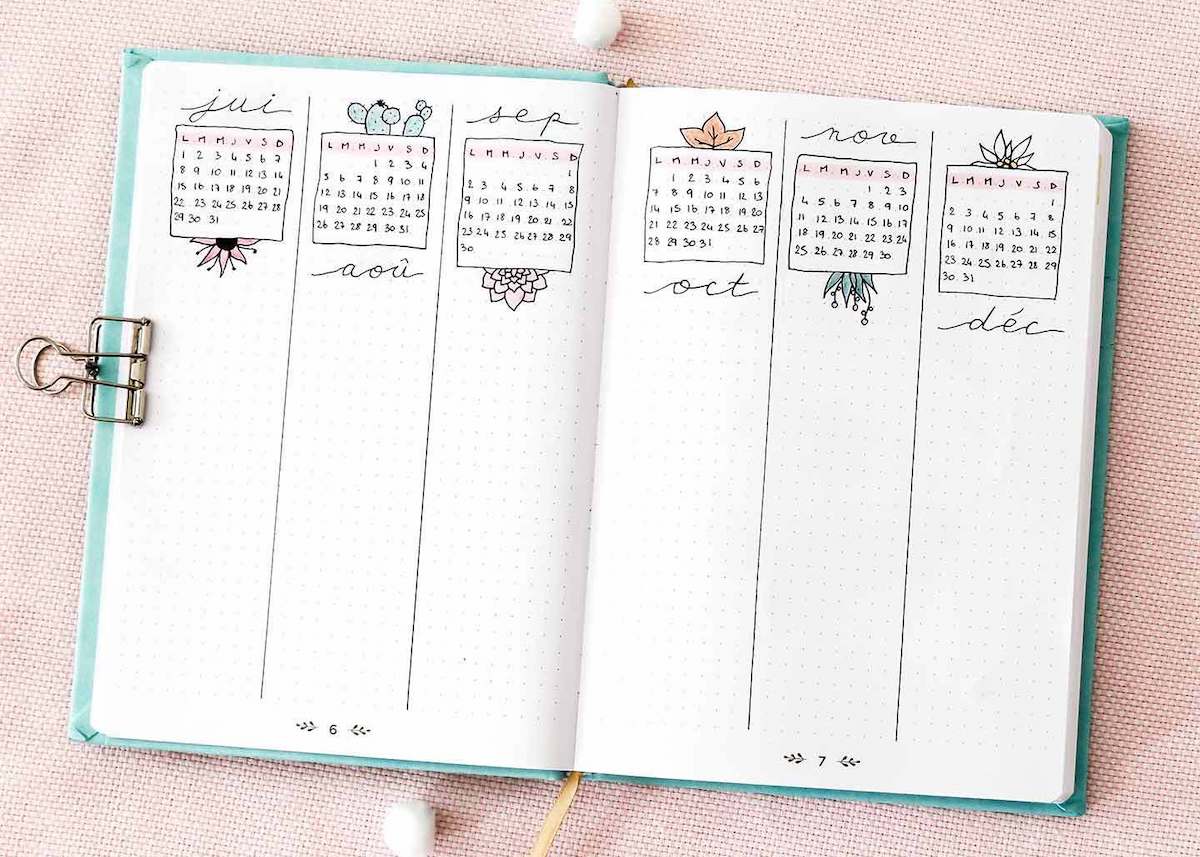 jui
L M M J V S D
1 2 3 4 5 6 7
8 9 10 11 12 13 14
15 16 17 18 19 20 21
22 23 24 25 26 27 28
29 30 31
L M M J V S D
1 2 3 4
5 6 7 8 9 10 11
12 13 14 15 16 17 18
19 20 21 22 23 24 25
26 27 28 29 30 31
aoû
sep
L M M J V S D
1
2 3 4 5 6 7 8
9 10 11 12 13 14 15
16 17 18 19 20 21 22
23 24 25 26 27 28 29
30
6
L M M J V S D
1 2 3 4 5 6
7 8 9 10 11 12 13
14 15 16 17 18 19 20
21 22 23 24 25 26 27
28 29 30 31
oct
nov
L M M J V S D
1 2 3
4 5 6 7 8 9 10
11 12 13 14 15 16 17
18 19 20 21 22 23 24
25 26 27 28 29 30
L M M J V S D
1
2 3 4 5 6 7 8
9 10 11 12 13 14 15
16 17 18 19 20 21 22
23 24 25 26 27 28 29
30 31
déc
7